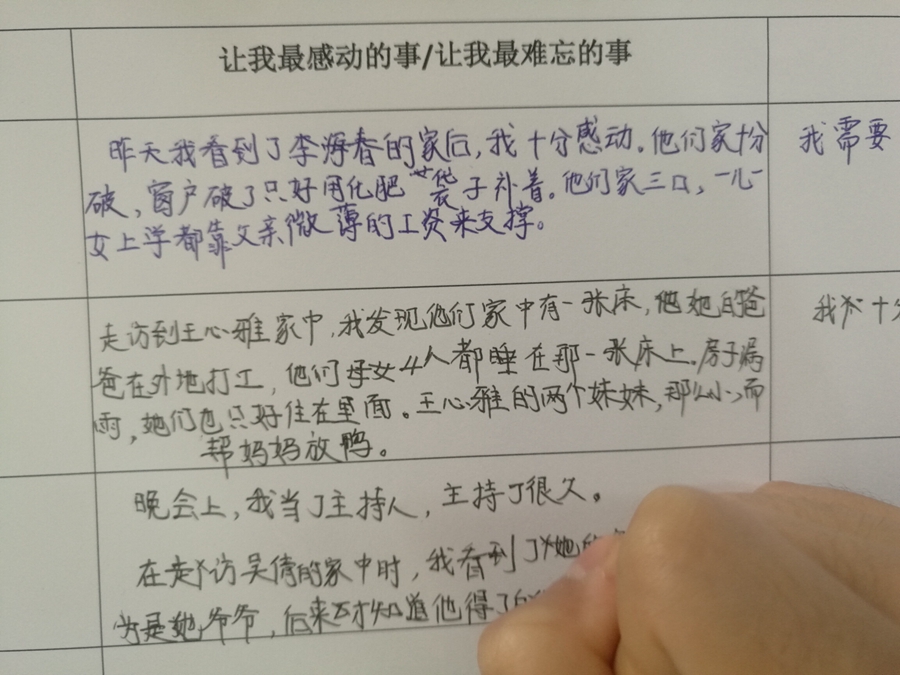 让我最感动的事/让我最难忘的事
昨天我看到了李海春的家后,我十分感动。他们家十分
破,窗户破了只好用化肥袋子补着。他们家三口,一儿一
女上学都靠父亲微薄的工资来支撑。
我需要
走访到王心雅家中,我发现他们家中有一张床,她的爸
爸在外地打工,他们母女4人都睡在那一张床上。房子漏
雨,她们也只好住在里面。王心雅的两个妹妹,那么小,而
帮妈妈放鸭。
我十分
晚会上,我当了主持人,主持了很久。
在走访吴倩的家中时,我看到了她的
为是她爷爷,后来才知道他得了